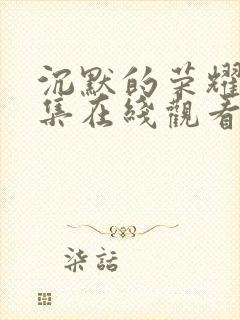 沉默的荣耀
集在綫觀看
柒話